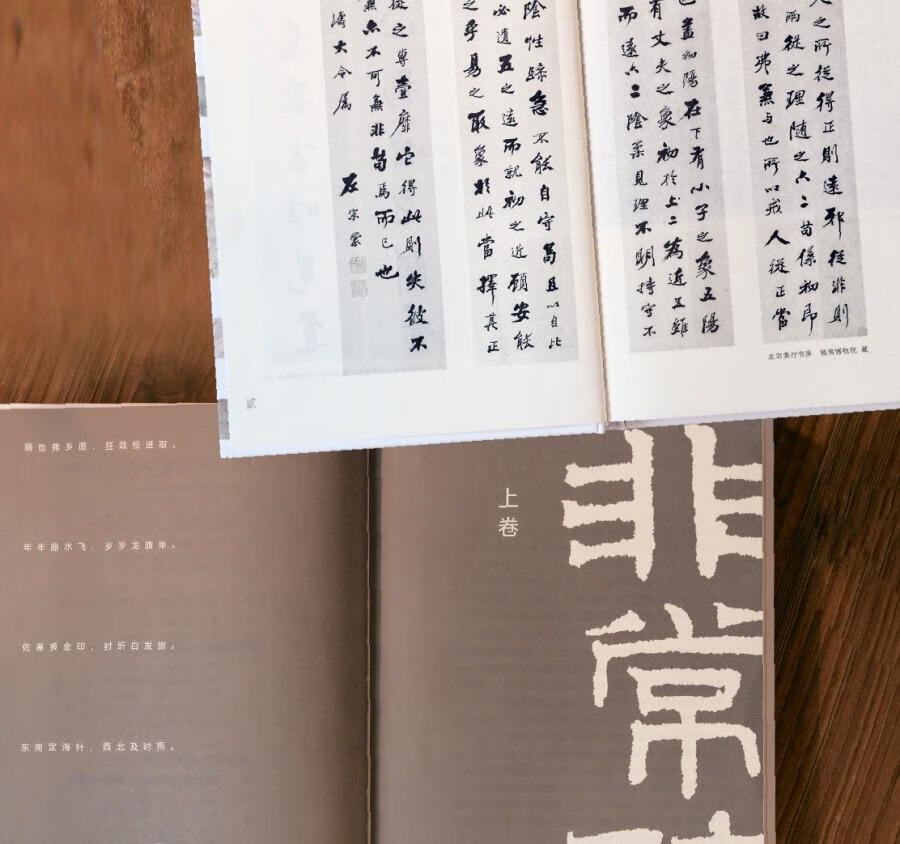 之所從得正則遠邪從非則
兩從之理隨之六二苟係初
故曰弗兼与也所以戒人從正當
盡初陽在下有小子之象五陽
有丈夫之象初於六二為近五雖
而遠六二陰柔見理不明持守不
陰性躁急不能自守苟且以自比
必遺五之遠而就初之近顧安能
之乎易之取象於此當擇其正
從之專壹靡它得此則失彼不
無亦不可無非苟焉而已也
濤大令属
左宗棠
左宗棠行书屏 湖南博物院 藏
贰
狷也弗乡愿，狂哉恒进取。
年年鼎水飞，岁岁龙旗举。
佐幕黄金印，封圻白发旅。
东南定海针，西北及时雨。
上卷
非常